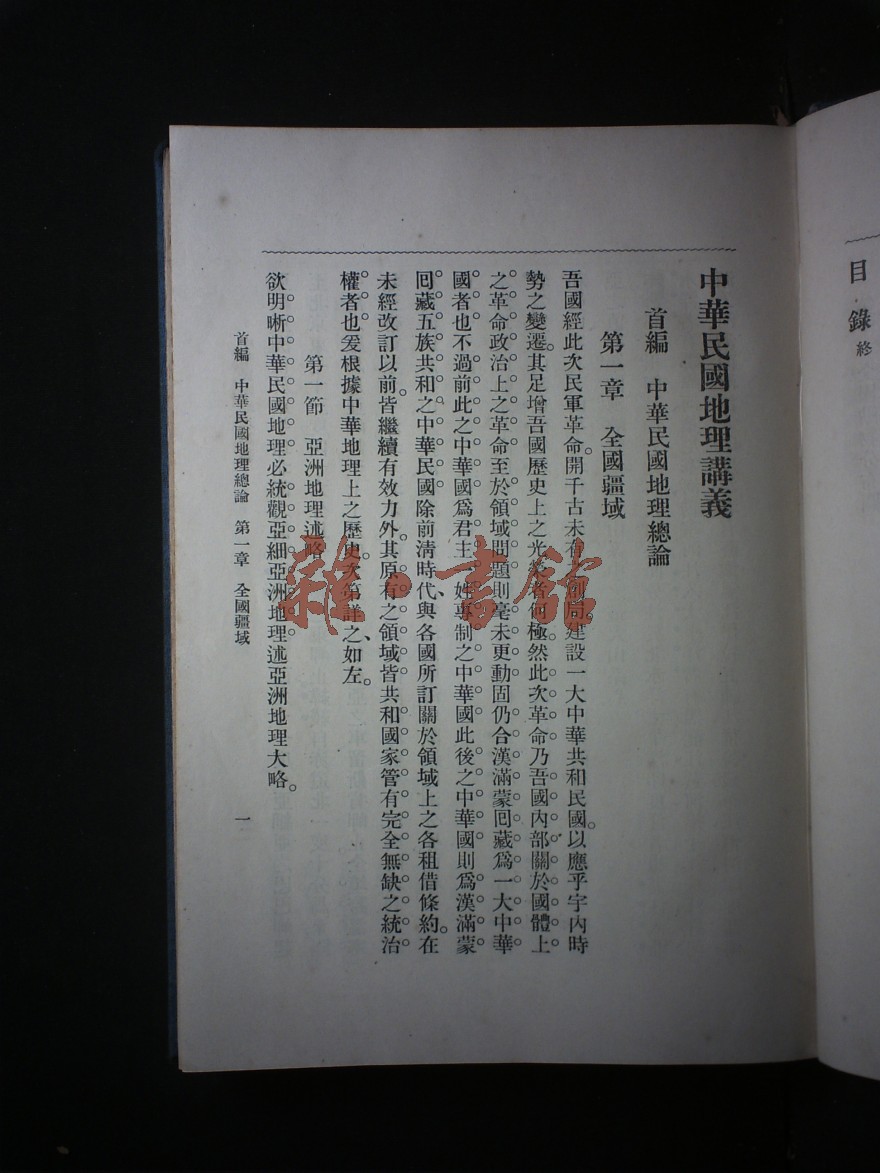 目錄終
中華民國地理講義
首編　中華民國地理總論
第一章　全國疆域
吾國經此次民軍革命。開千古未有創局。建設一大中華共和民國。以應乎宇內時
勢之變遷。其足增吾國歷史上之光榮者何極。然此次革命乃吾國內部關於國體上
之革命政治上之革命至於領域問題則毫未更動固仍合漢滿蒙回藏爲一大中華
國者也不過前此之中華國爲君主一姓專制之中華國此後之中華國則爲漢滿蒙
回藏五族共和之中華民國除前淸時代、與各國所訂關於領域上之各租借條約。在
未經改訂以前。皆繼續有效力外。其原有之領域皆共和國家管有完全無缺之統治
權者也爰根據中華地理上之歷史。次第詳之、如左。
第一節　亞洲地理述略
欲明晰中華民國地理必統觀亞細亞洲地理述亞洲地理大略。
首編　中華民國地理總論　第一章　全國疆域
一
雜·書館